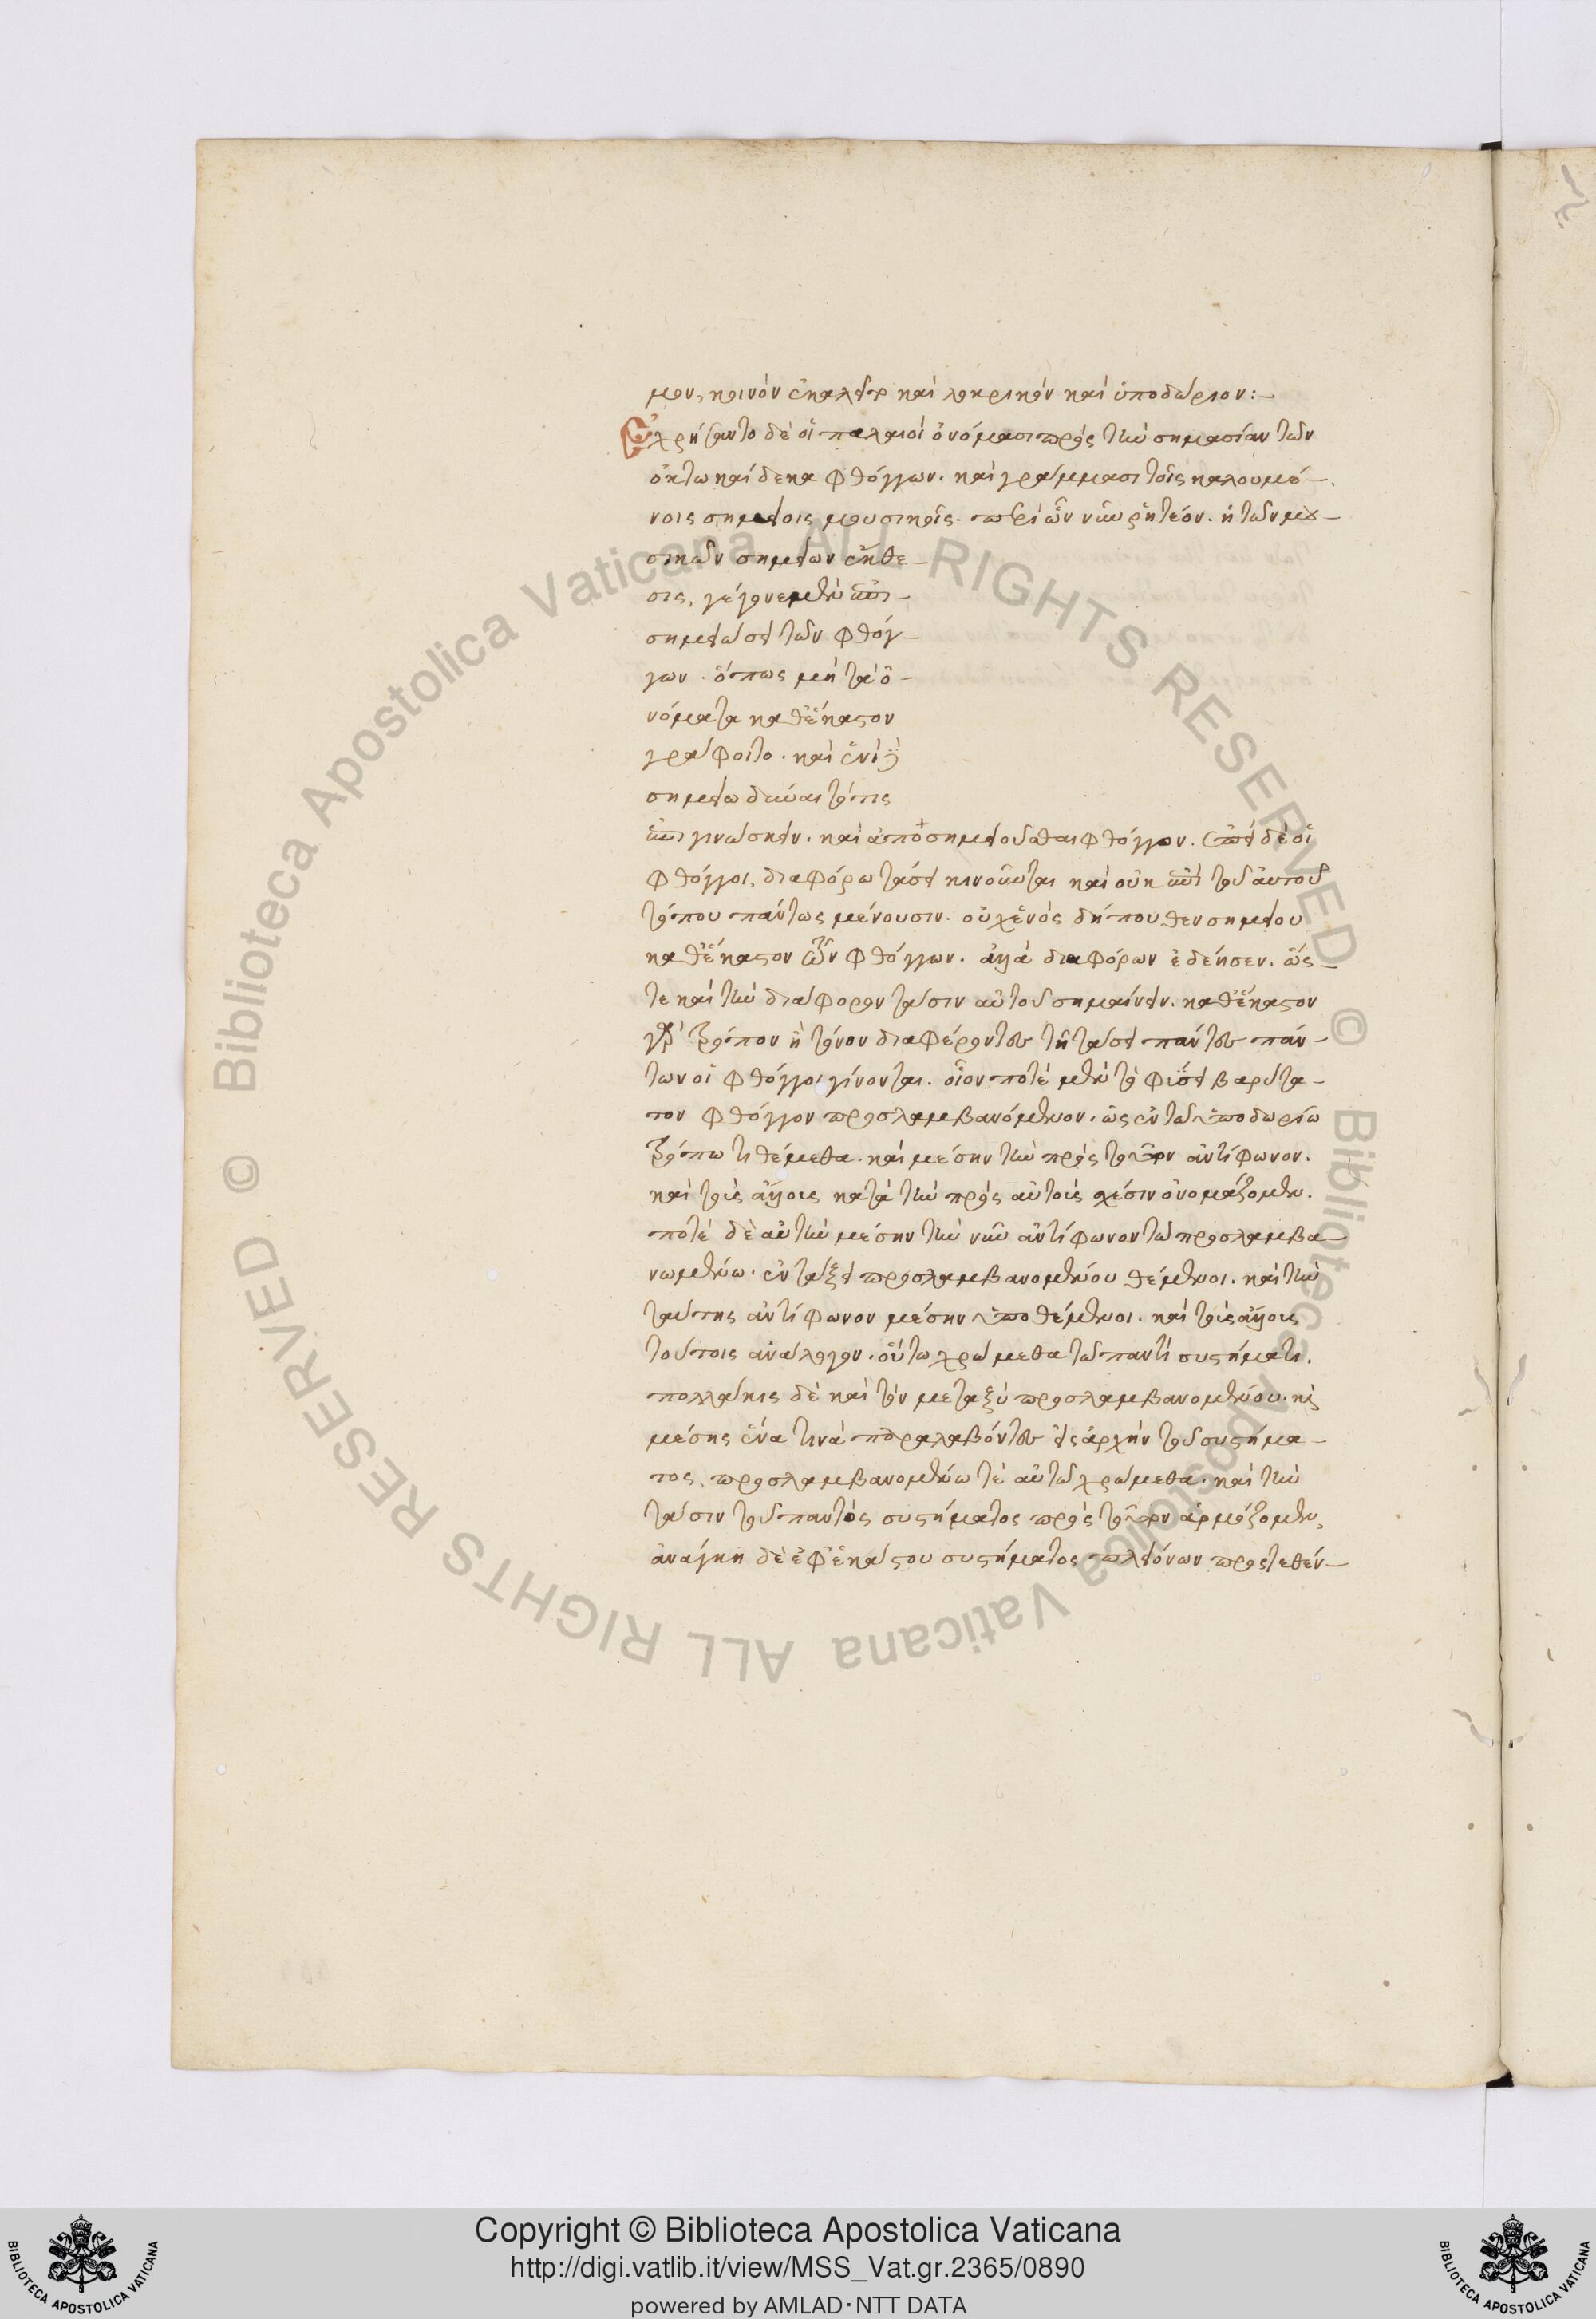 μον, κοινὸν ἐκάλουν καὶ λοκρικὸν καὶ ὑποδώριον:
Ἐχρήσαντο δὲ οἱ παλαιοὶ ὀνόμασι πρὸς τὴν σημασίαν τῶν
ὀκτωκαίδεκα φθόγγων. καὶ γράμμασι τοῖς καλουμέ-
νοις σημείοις μουσικοῖς. περὶ ὧν νῦν ῥητέον. ἡ τῶν μου-
σικῶν σημείων ἔκθε-
σις, γέγονε μὲν ἐπι-
σημειώσει τῶν φθόγ-
γων. ὅπως μὴ τὰ ὀ-
νόματα καθ' ἕκαστον
γράφοιτο. καὶ ἑνί
σημείω δύναιτό τις
ἐπιγινώσκειν. καὶ ἀποσημειοῦσθαι φθόγγον. ἐπεὶ δὲ οἱ
φθόγγοι, διαφόρω τάσει κινοῦνται καὶ οὐκ ἐπὶ τοῦ αὐτοῦ
τόπου πάντως μένουσιν. οὐχ ἑνὸς δήπουθεν σημείου
καθ' ἕκαστον τῶν φθόγγων. ἀλλὰ διαφόρων ἐδέησεν. ὥσ-
τε καὶ τὴν διάφορον τάσιν αὐτοῦ σημαίνειν. καθ' ἕκαστον
γὰρ τρόπον ἢ τόνον διαφέροντες τῇ τάσει πάντες πάν-
των οἱ φθόγγοι γίνονται. οἷον ποτὲ μὲν τὸ φύσει βαρύτα-
τον φθόγγον προσλαμβανόμενον. ὡς ἐν τῶ ὑποδωρίω
τρόπω τιθέμεθα. καὶ μέσην τὴν πρὸς τοῦτον ἀντίφωνον.
καὶ τοὺς ἄλλους κατὰ τὴν πρὸς αὐτοὺς σχέσιν ὀνομάζομεν.
ποτὲ δὲ αὐτὴν μέσην τὴν νῦν ἀντίφωνον τῶ προσλαμβα-
νωμένω. ἐν τάξει προσλαμβανομένου θέμενοι. καὶ τὴν
ταύτης ἀντίφωνον μέσην ὑποθέμενοι. καὶ τοὺς ἄλλους
τούτοις ἀνάλογον. οὕτω χρώμεθα τῶ παντὶ συστήματι.
πολλάκις δὲ καὶ τὸν μεταξὺ προσλαμβανομένου. καὶ
μέσης ἕνα τινὰ παραλαβόντες εἰς ἀρχὴν τοῦ συστήμα-
τος, προσλαμβανομένω τὲ αὐτῶ χρώμεθα. καὶ τὴν
τάσιν τοῦ παντὸς συστήματος πρὸς τοῦτον ἁρμόζομεν,
ἀνάγκη δὲ ἐφ' ἑκάστου συστήματος πλειόνων προστεθέν-
Copyright © Biblioteca Apostolica Vaticana
http://digi.vatlib.it/view/MSS_Vat.gr.2365/0890
powered by AMLAD·NTT DATA
BIBLIOTECA APOSTOLICA VATICANA
BIBLIOTECA APOSTOLICA VATICANA
© Biblioteca Apostolica Vaticana ALL RIGHTS RESERVED
© Biblioteca Apostolica Vaticana ALL RIGHTS RESERVED